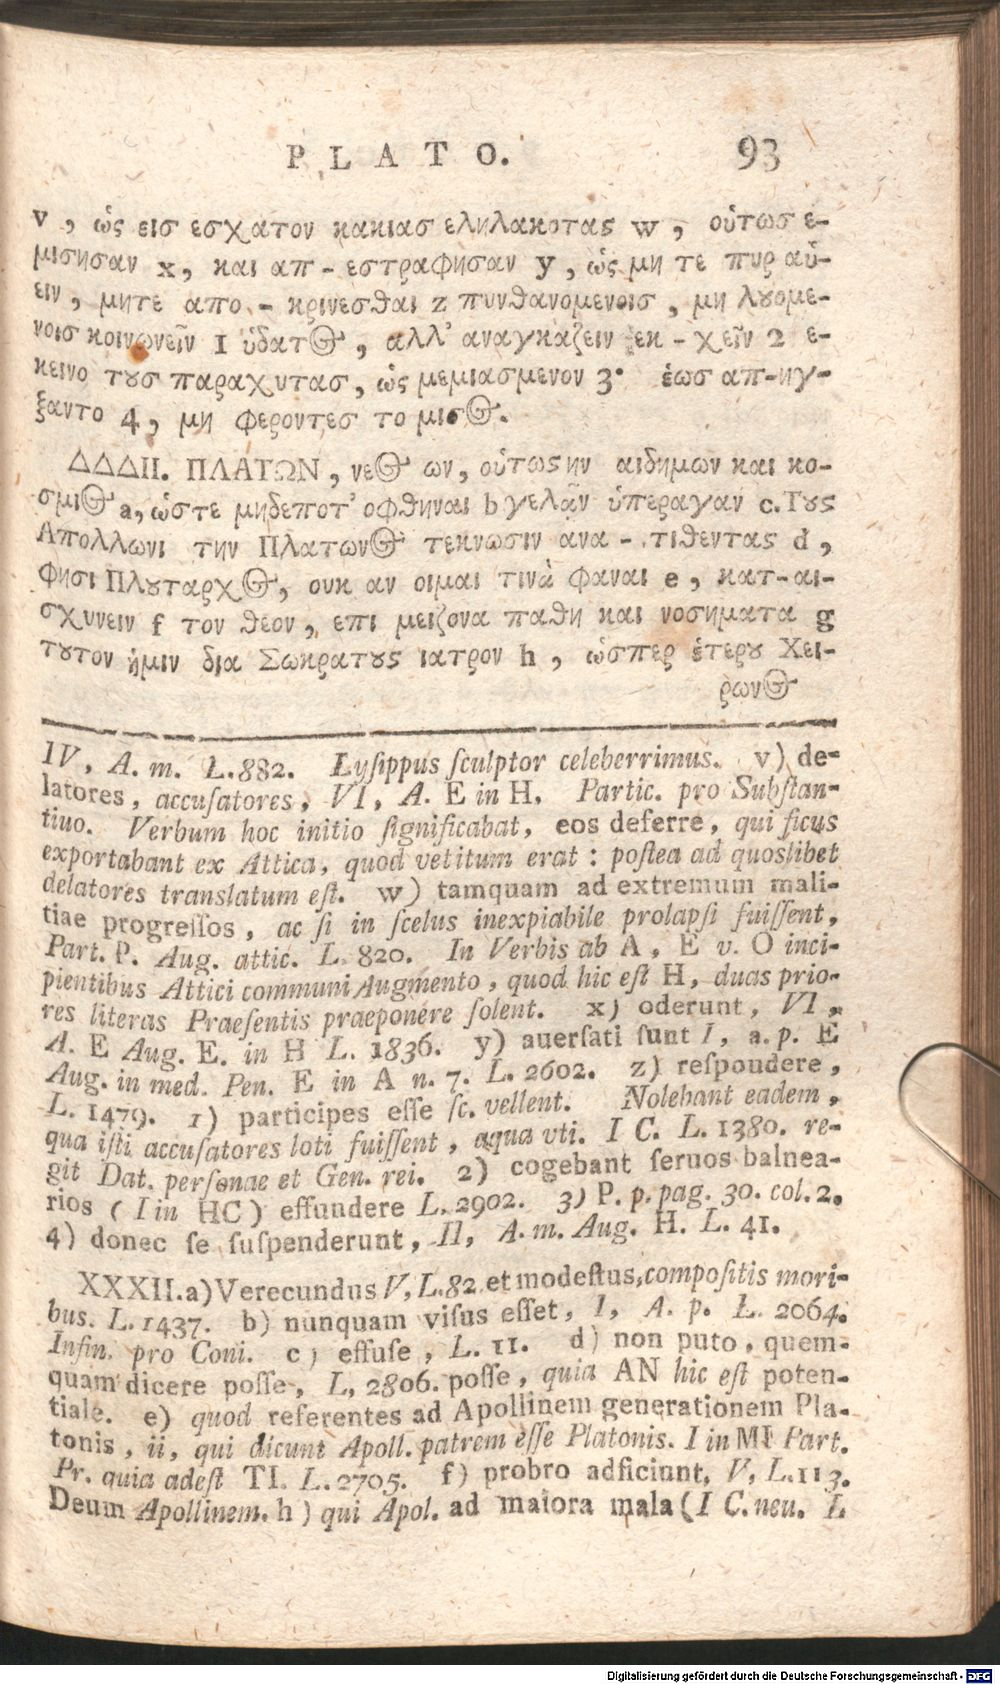 PLATO. 93
v, ὡς εισ εσχατον κακιασ εληλακοτας w, οὑτωσ ε-
μισησαν x, και απ-εστραφησαν y, ὡς μη τε πυρ αὑ-
ειν, μητε απο-κρινεσθαι z πυνθανομενοισ, μη λȣομε-
νοισ κοινωνεῖν 1 ὑδατος, αλλ' αναγκαζειν εκ-χεῖν 2 ε-
κεινο τȣσ παραχυτασ, ὡς μεμιασμενον 3· ἑωσ απ-ηγ-
ξαντο 4, μη φεροντεσ το μισος.
ΔΔΔΙΙ. ΠΛΑΤΩΝ, νεος ων, οὑτως ην αιδημων και κο-
σμιος a, ὡστε μηδεποτ' οφθηναι b γελᾶν ὑπεραγαν c. Τȣς
Απολλωνι την Πλατωνος τεκνωσιν ανα-τιθεντας d,
φησι Πλȣταρχος, ουκ αν οιμαι τινὰ φαναι e, κατ-αι-
σχυνειν f τον θεον, επι μειζονα παθη και νοσηματα g
τȣτον ἡμιν δια Σωκρατȣς ιατρον h, ὡσπερ ἑτερȣ Χει-
ρωνος
IV, A. m. L. 882. Lysippus sculptor celeberrimus. v) de-
latores, accusatores, VI, A. E in H. Partic. pro Substan-
tiuo. Verbum hoc initio significabat, eos deferre, qui ficus
exportabant ex Attica, quod vetitum erat: postea ad quoslibet
delatores translatum est. w) tamquam ad extremum mali-
tiae progressos, ac si in scelus inexpiabile prolapsi fuissent,
Part. P. Aug. attic. L. 820. In Verbis ab A, E v. O inci-
pientibus Attici communi Augmento, quod hic est H, duas prio-
res literas Praesentis praeponere solent. x) oderunt, VI,
A. E Aug. E. in H L. 1836. y) auersati sunt I, a. p. E
Aug. in med. Pen. E in A n. 7. L. 2602. z) respondere,
L. 1479. 1) participes esse sc. vellent. Nolebant eadem,
qua isti accusatores loti fuissent, aqua vti. I C. L. 1380. re-
git Dat. personae et Gen. rei. 2) cogebant seruos balnea-
rios (I in HC) effundere L. 2902. 3) P. p. pag. 30. col. 2.
4) donec se suspenderunt, II, A. m. Aug. H. L. 41.
XXXII. a) Verecundus V, L. 82 et modestus, compositis mori-
bus. L. 1437. b) nunquam visus esset, I, A. p. L. 2064.
Infin. pro Coni. c) effuse, L. 11. d) non puto, quem-
quam dicere posse, L, 2806. posse, quia AN hic est poten-
tiale. e) quod referentes ad Apollinem generationem Pla-
tonis, ii, qui dicunt Apoll. patrem esse Platonis. I in MI Part.
Pr. quia adest TI. L. 2705. f) probro adficiunt, V, L. 113.
Deum Apollinem. h) qui Apol. ad maiora mala (I C. neu. L
Digitalisierung gefördert durch die Deutsche Forschungsgemeinschaft - DFG